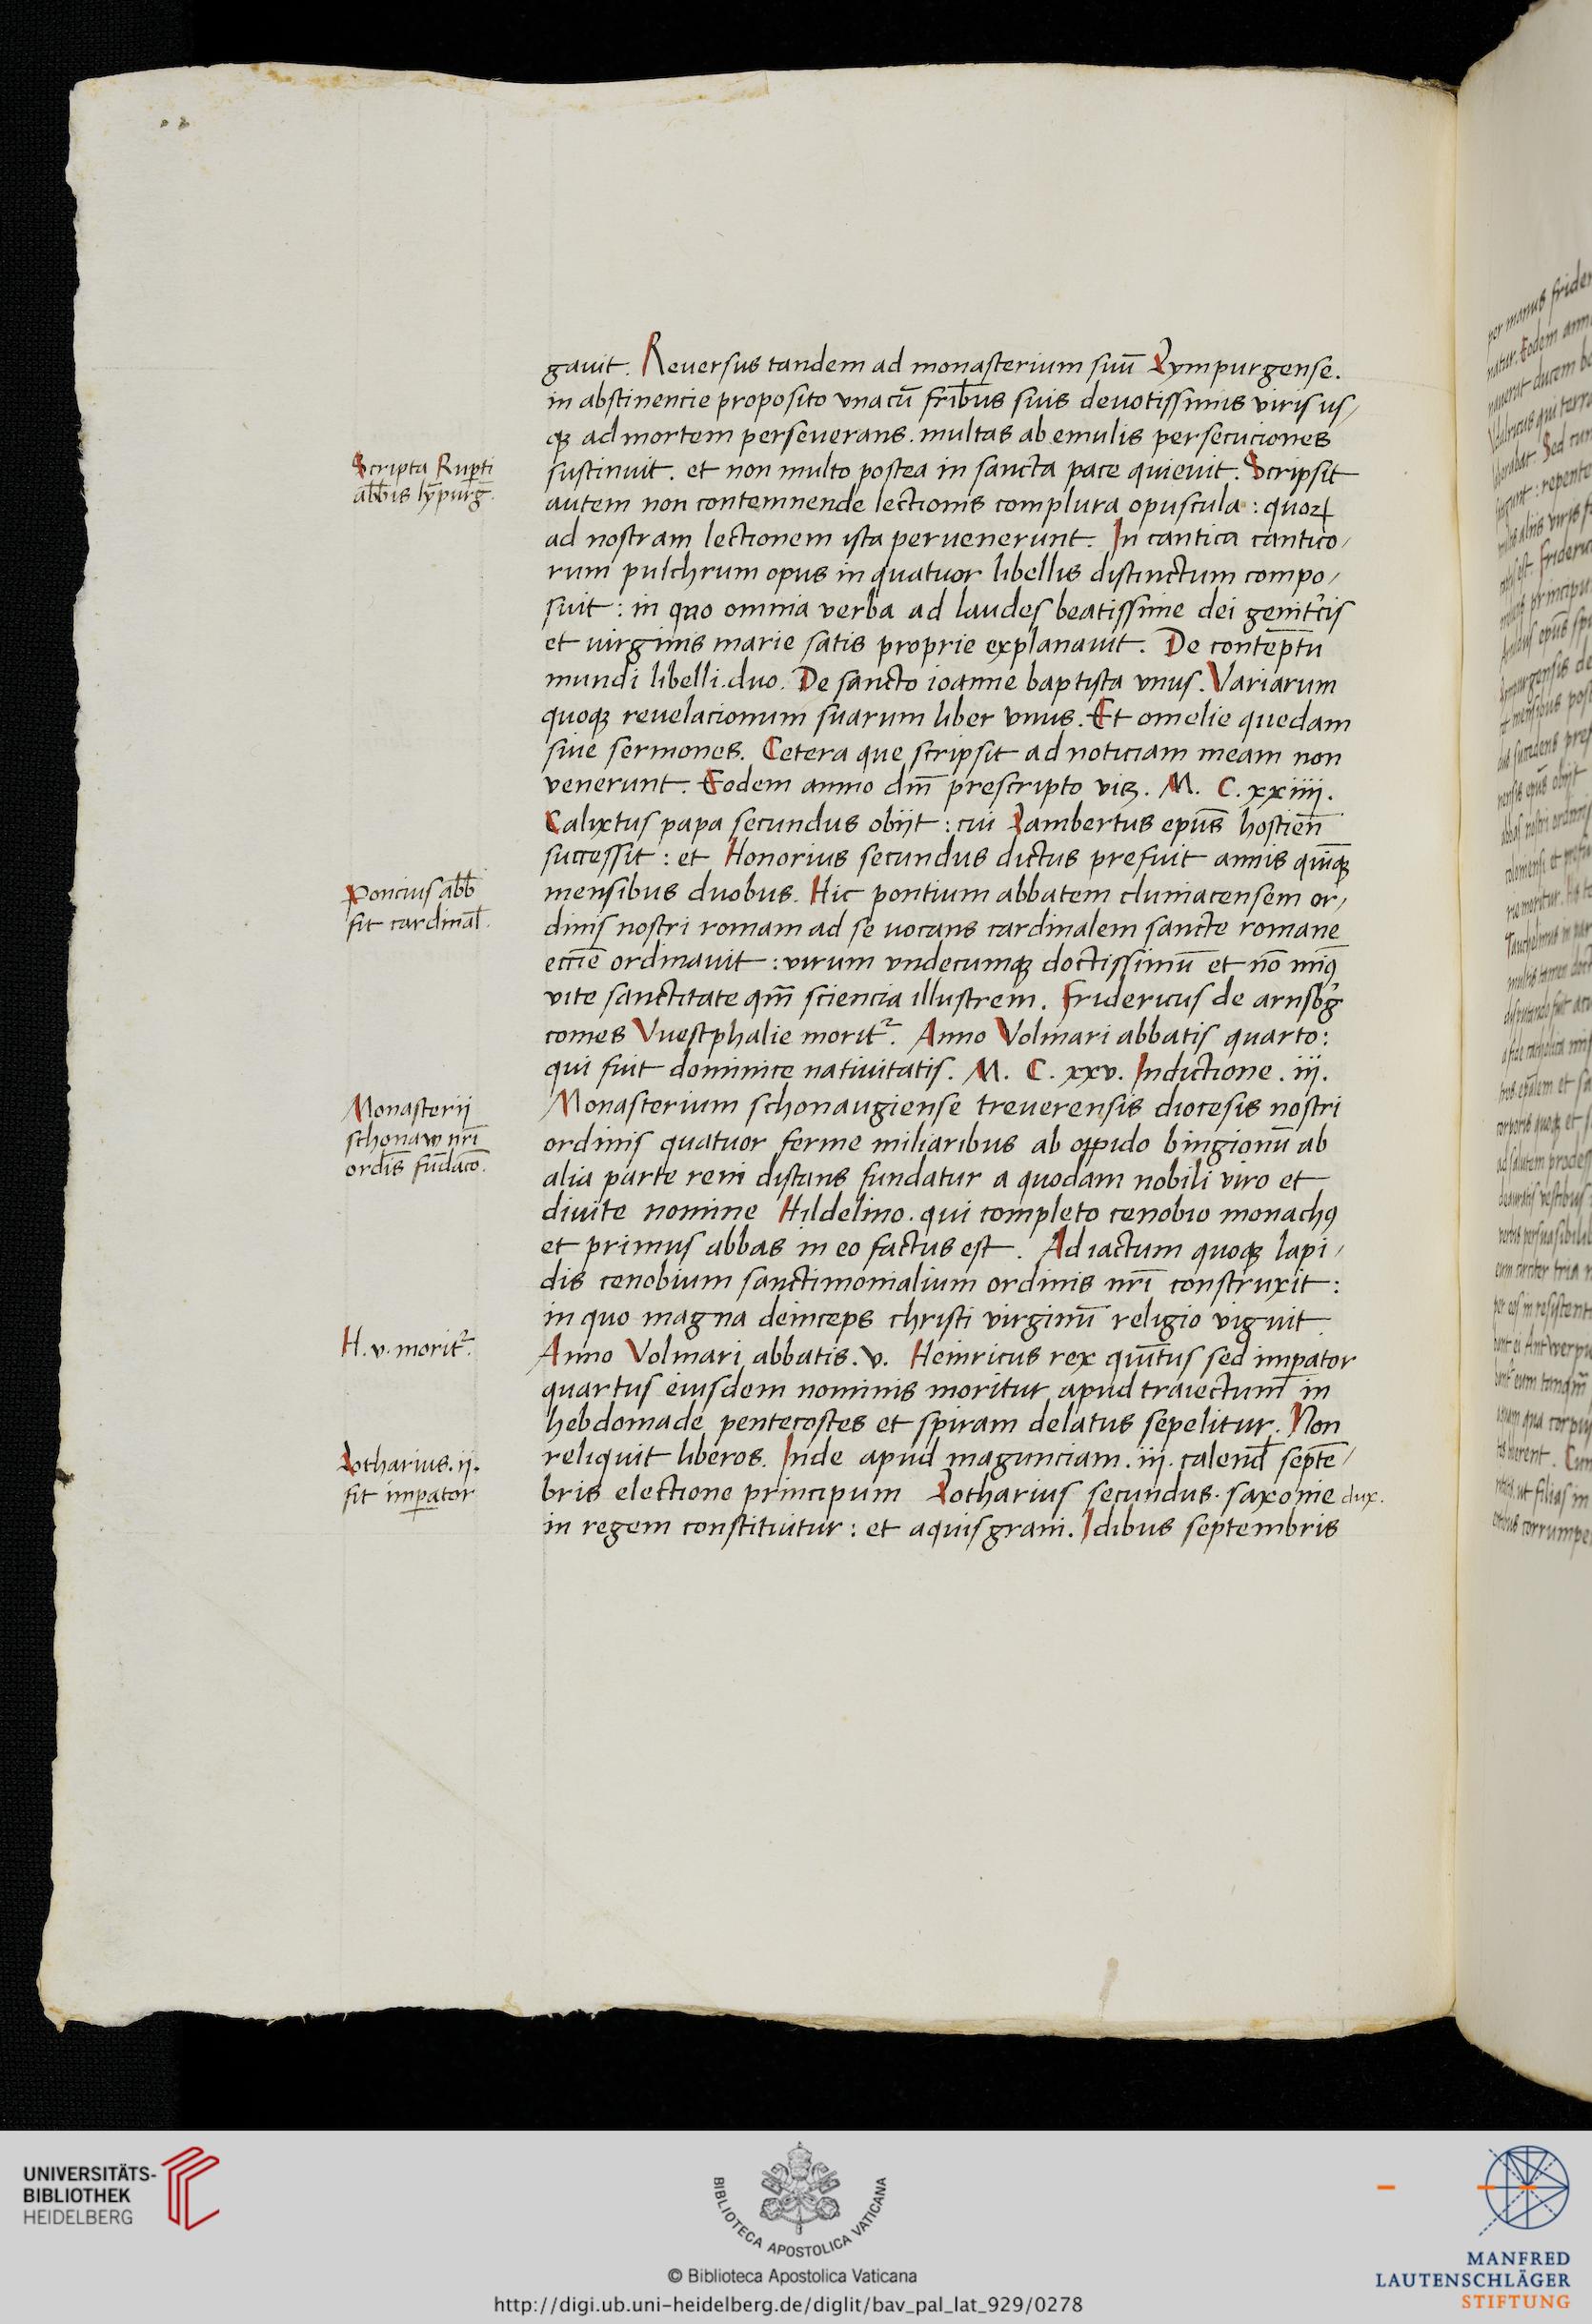 gauit. Reuersus tandem ad monasterium suū Lympurgense.
in abstinencie proposito vnacū frībus suis deuotissimis viris us/
qꝫ ad mortem perseuerans. multas ab emulis persecuciones
Scripta Rupti
abbis lȳpurg̅.
sustinuit. et non multo postea in sancta pace quieuit. Scripsit
autem non contemnende lectionis complura opuscula : quoꝝ
ad nostram lectionem ista peruenerunt. In cantica cantico/
rum pulchrum opus in quatuor libellis distinctum compo/
suit : in quo omnia verba ad laudes beatissime dei genitcis
et virginis marie satis proprie explanauit. De contēptu
mundi libelli.duo. De sancto ioanne baptista vnus. Variarum
quoqꝫ reuelacionum suarum liber vnus. Et omelie quedam
siue sermones. Cetera que scripsit ad noticiam meam non
venerunt. Eodem anno dnī prescripto viꝫ. M. C. xxiiii.
Calixtus papa secundus obijt : cui Lambertus epūs hostien̄
successit : et Honorius secundus dictus prefuit annis quīqꝫ
Poncius abb̄
fit cardinal̄.
mensibus duobus. Hic pontium abbatem cluniacensem or/
dinis nostri romam ad se uocans cardinalem sancte romane
eccīe ordinauit : virum vndecumqꝫ doctissimū et nō minꝰ
vite sanctitate qm̄ sciencia illustrem. Fridericus de arnsb̄g
comes Vuestphalie moritᷣ. Anno Volmari abbatis quarto :
qui fuit dominice natiuitatis. M. C. xxv. Indictione. iij.
Monasterii
schonaw nr̄i
ordīs fūdacō.
Monasterium schonaugiense treuerensis diocesis nostri
ordinis quatuor ferme miliaribus ab oppido bingionū ab
alia parte reni distans fundatur a quodam nobili viro et
diuite nomine Hildelino. qui completo cenobio monachꝰ
et primus abbas in eo factus est. Ad iactum quoqꝫ lapi/
dis cenobium sanctimonialium ordinis nr̄i construxit :
in quo magna deinceps christi virginū religio viguit.
H. v. moritᷣ.
Anno Volmari abbatis. v. Heinricus rex quītus sed impator
quartus eiusdem nominis moritur apud traiectum in
hebdomade pentecostes et spiram delatus sepelitur. Non
Lotharius. ij.
fit impator
reliquit liberos. Inde apud magunciam. iij. calend̄ septē/
bris electione principum Lotharius secundus. saxonie dux.
in regem constituitur : et aquisgrani. Idibus septembris
UNIVERSITÄTS-
BIBLIOTHEK
HEIDELBERG
BIBLIOTECA APOSTOLICA VATICANA
© Biblioteca Apostolica Vaticana
http://digi.ub.uni-heidelberg.de/diglit/bav_pal_lat_929/0278
MANFRED
LAUTENSCHLÄGER
STIFTUNG